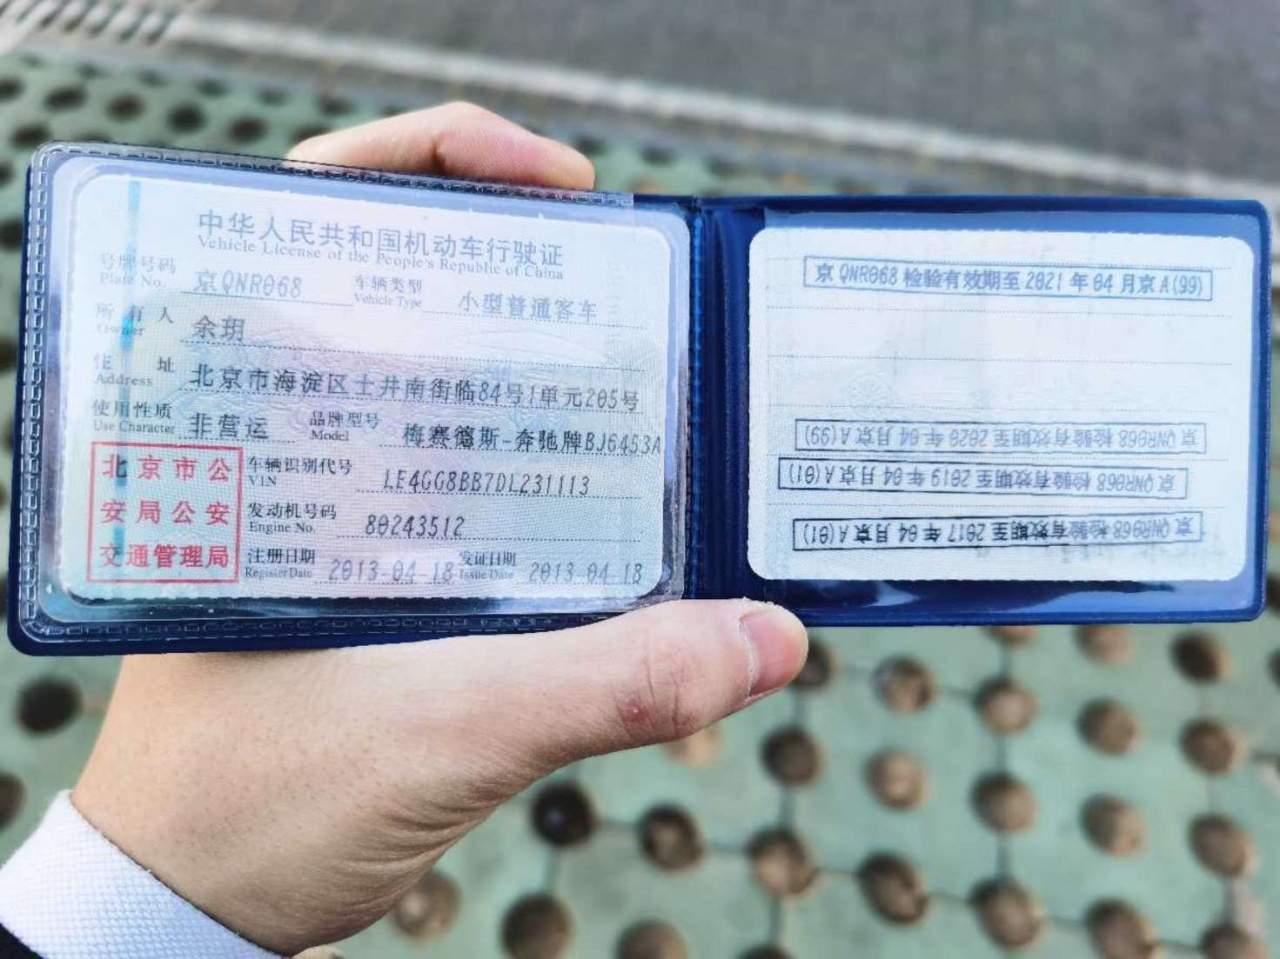 中华人民共和国机动车行驶证
Vehicle License of the People's Republic of China
号牌号码 京QNR068 车辆类型 小型普通客车
Plate No. Vehicle Type
所有人 余玥
Owner
住址 北京市海淀区土井南街临84号1单元205号
Address
使用性质 非营运 品牌型号 梅赛德斯-奔驰牌BJ6453A
Use Character Model
北京市公
安局公安
交通管理局
车辆识别代号 LE4GG8BB7DL231113
VIN
发动机号码 80243512
Engine No.
注册日期 2013-04-18 发证日期 2013-04-18
Register Date Issue Date
京QNR068 检验有效期至 2021 年 04 月京 A(99)
京QNR068 检验有效期至 2020 年 04 月京 A(99)
京QNR068 检验有效期至 2019 年 04 月京 A(01)
京QNR068 检验有效期至 2017 年 04 月京 A(01)